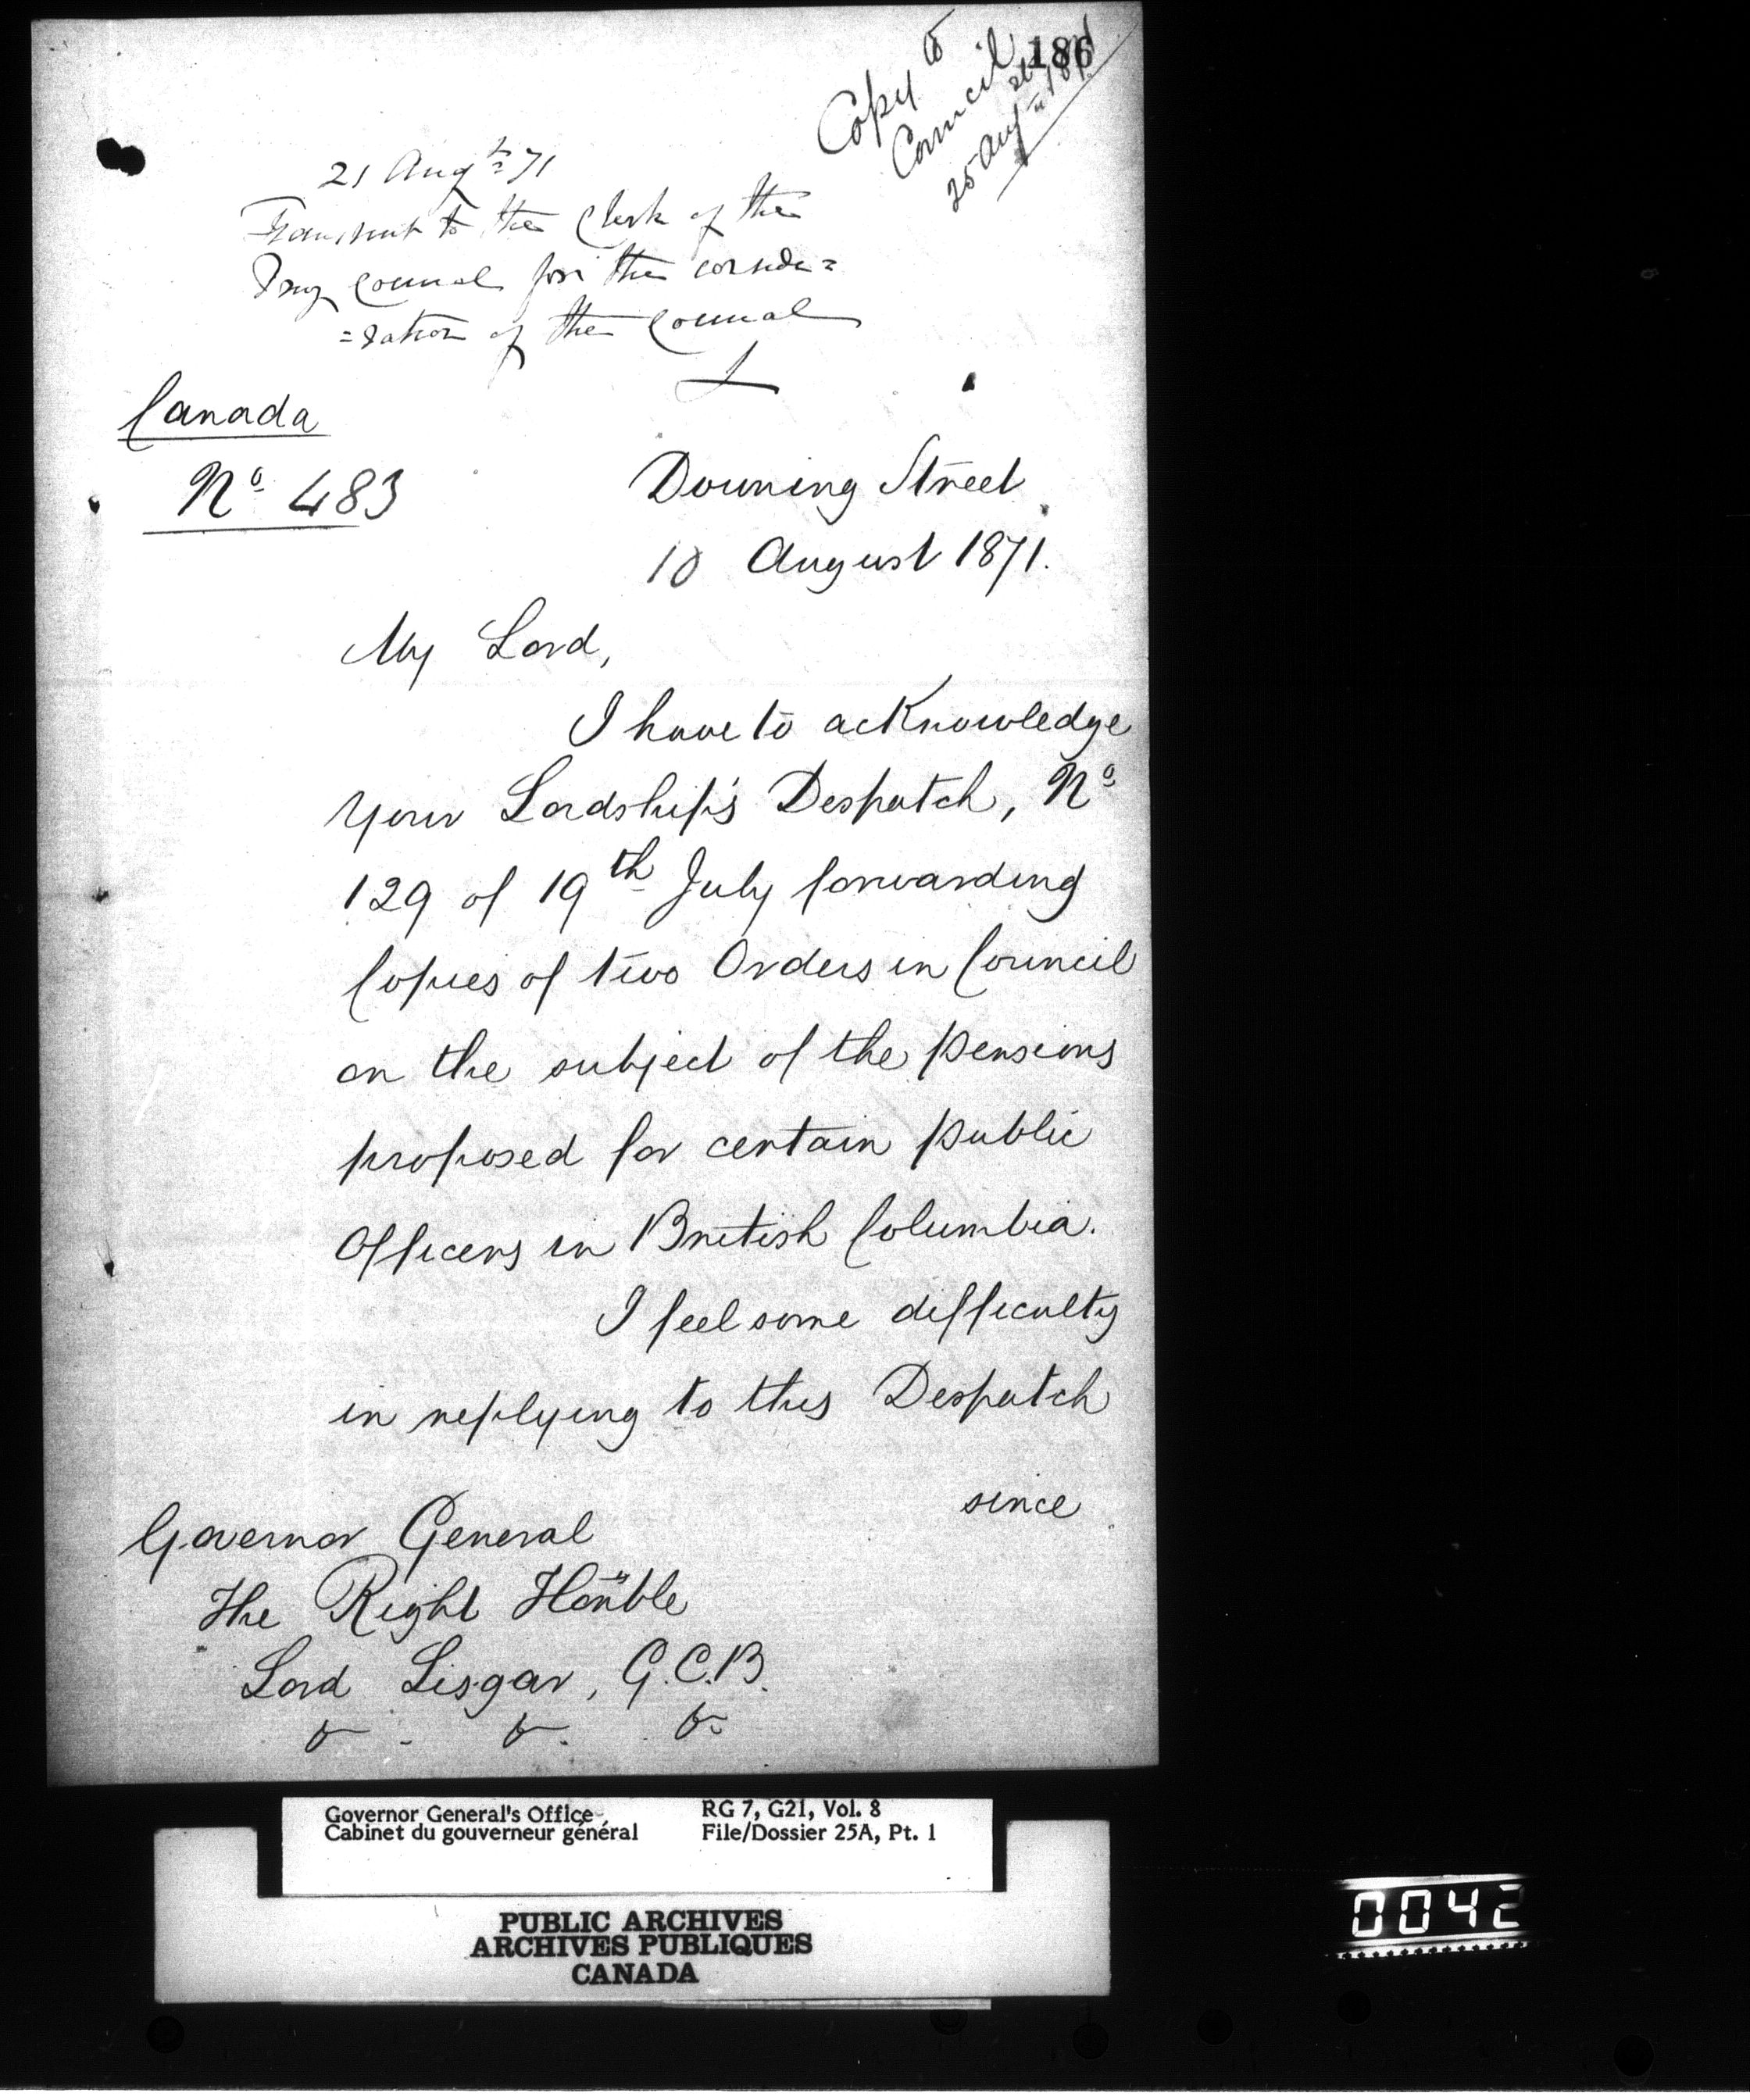 186
Copy to
Council
25 Augt 1871
21 Augt 71
Transmit to the Clerk of the
Privy Council for the conside=
=ration of the Council
L
Canada
No 483
Downing Street
10 August 1871.
My Lord,
I have to acknowledge
your Lordship's Despatch, No
129 of 19th July forwarding
Copies of two Orders in Council
on the subject of the pensions
proposed for certain public
Officers in British Columbia.
I feel some difficulty
in replying to this Despatch
since
Governor General
The Right Honble
Lord Lisgar, G.C.B.
&. &. &.
Governor General's Office
Cabinet du gouverneur général
RG 7, G21, Vol. 8
File/Dossier 25A, Pt. 1
PUBLIC ARCHIVES
ARCHIVES PUBLIQUES
CANADA
0042